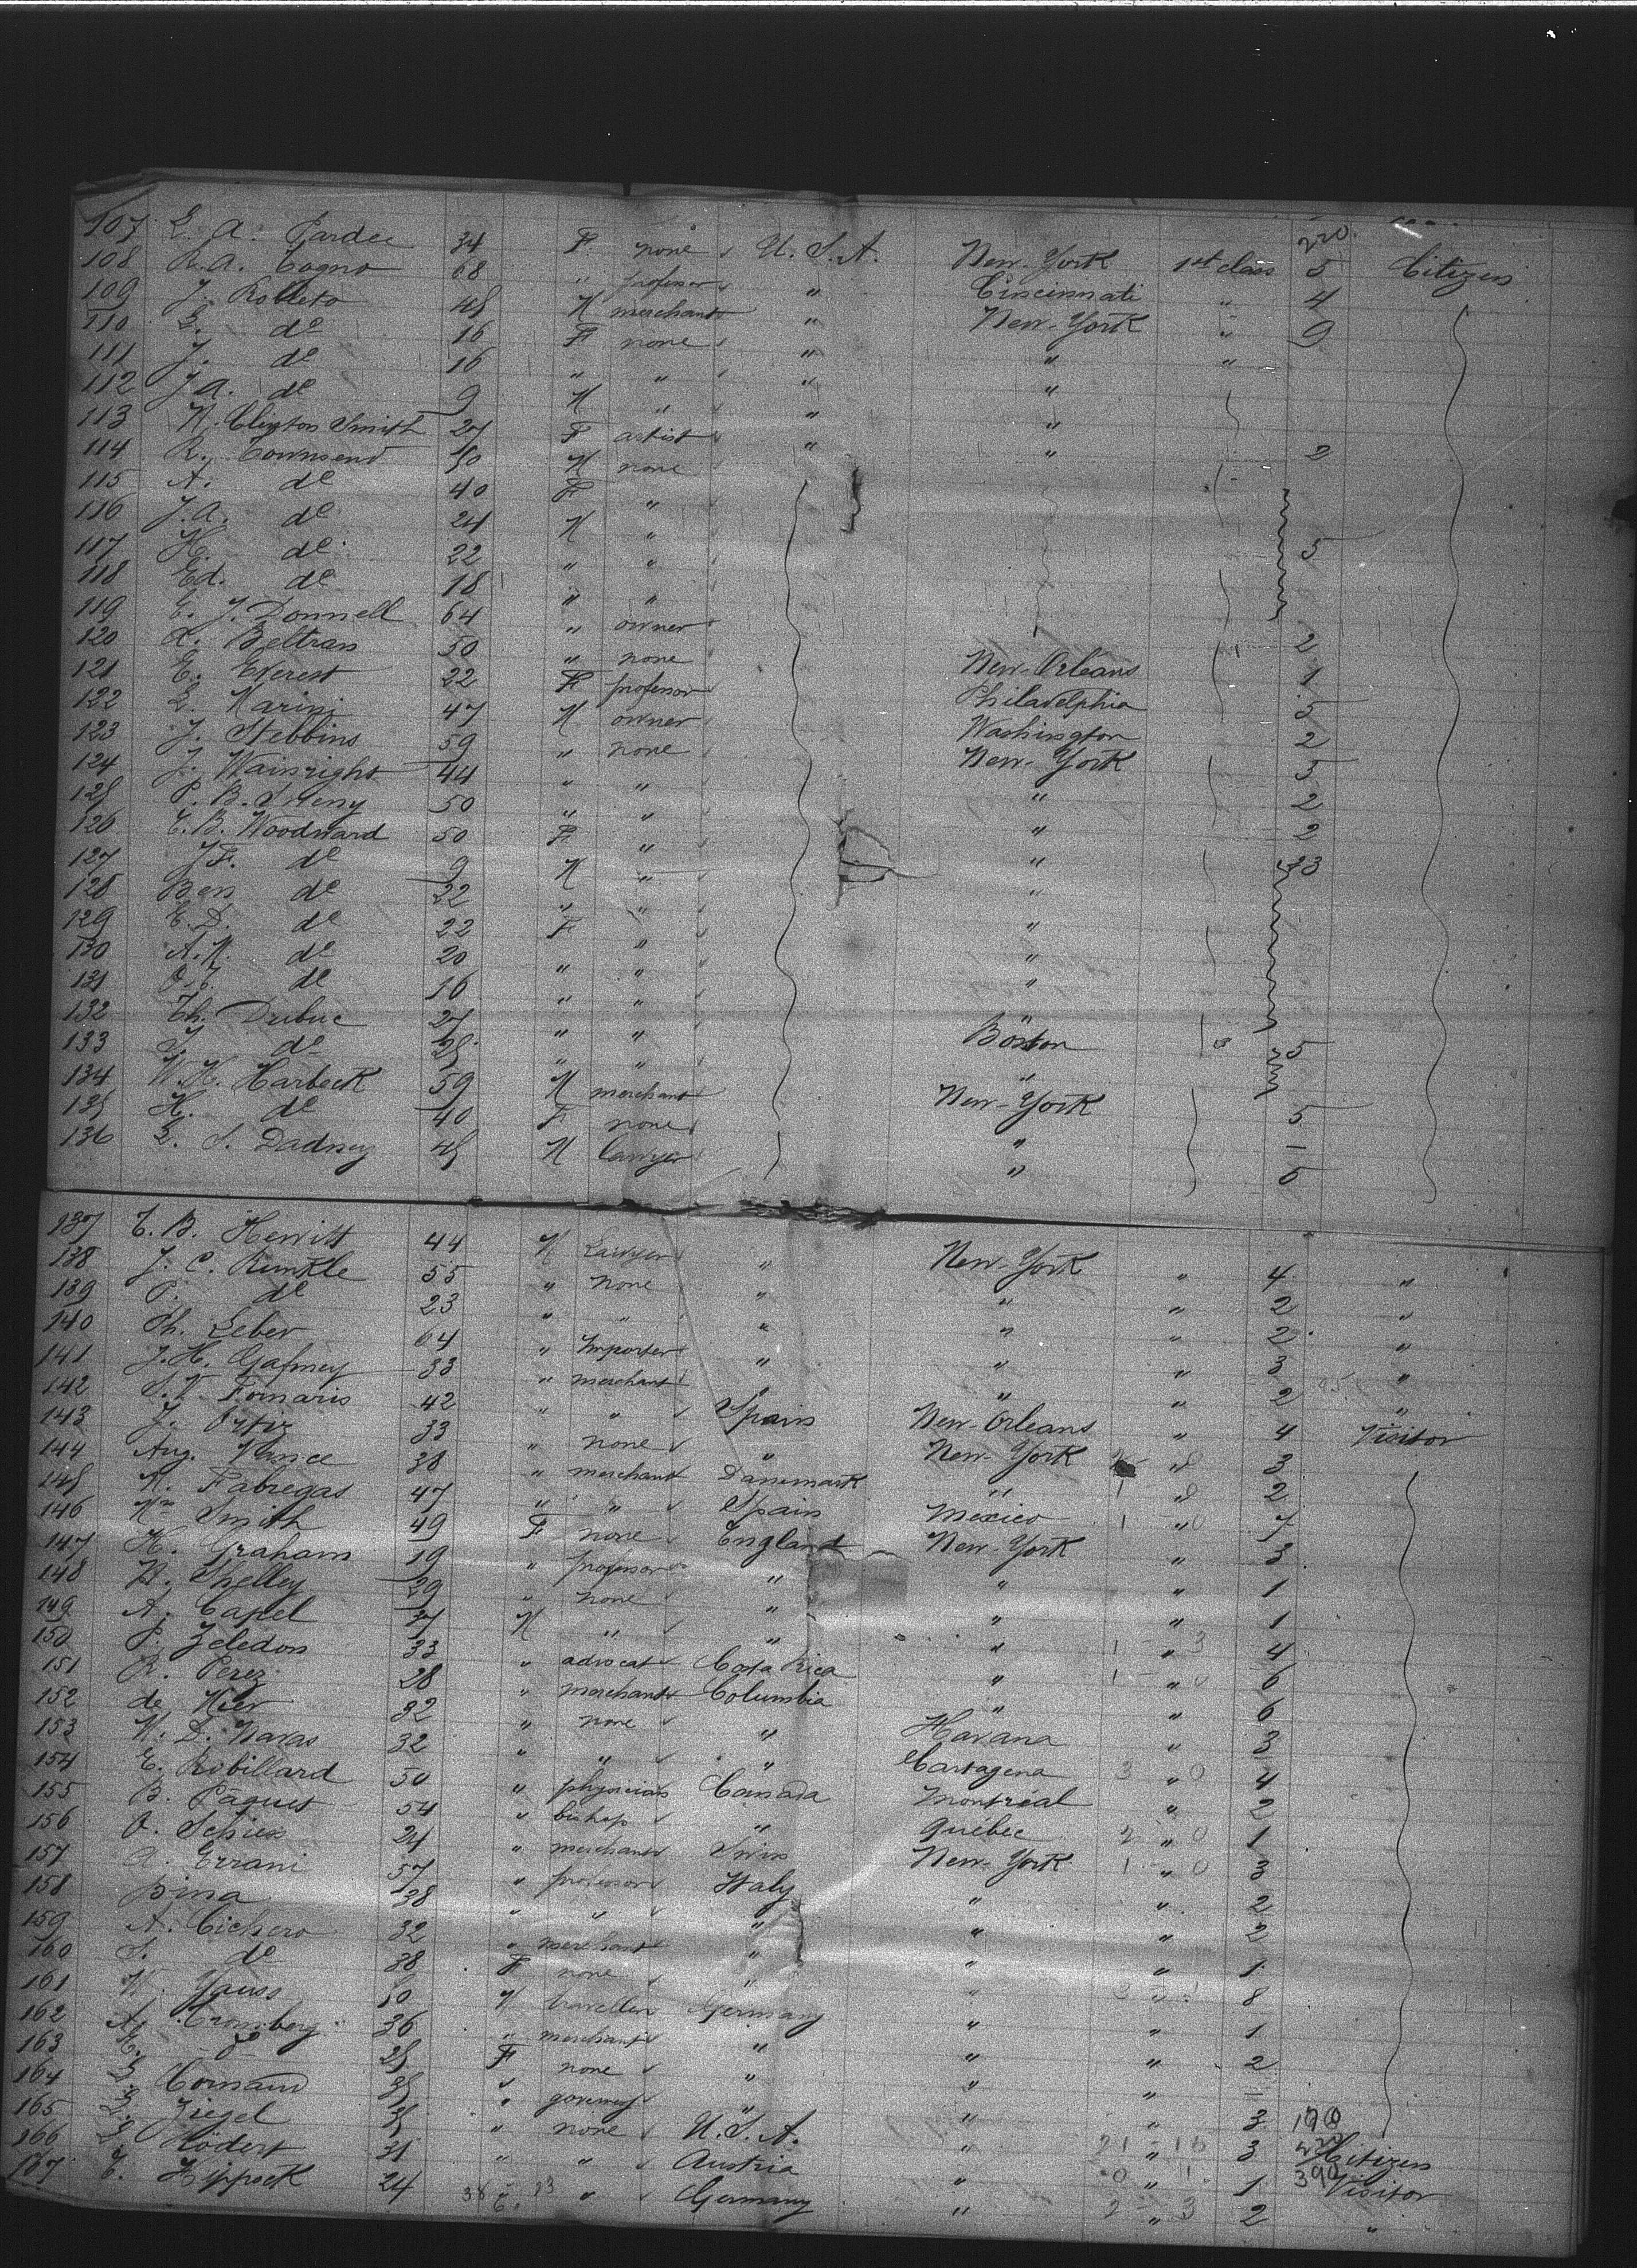 220.
107 E. A. Pardee 34 F. none U. S. A. New-York 1st class 5 Citizen
108 R. A. Cogno 68 " professor " Cincinnati " 4
109 J. Robleto 45 M merchant " New-York " 9
110 E. do 16 F none " " "
111 J. do 16 " " " "
112 J. A. do 9 M " " "
113 M. Clinton Smith 27 F artist " " 2
114 R. Townsend 50 M none
115 A. do 40 F "
116 J. A. do 24 M "
117 H. do 22 " " 5
118 Ed. do 18 " "
119 E. J. Donnell 64 " owner 2
120 L. Beltran 50 " none New-Orleans 1
121 E. Everest 22 F professor Philadelphia 5
122 E. Marini 47 M owner Washington 2
123 J. Stebbins 59 " none New-York 5
124 J. Wainright 44 " " " 2
125 P. B. 50 " " " 2
126 E. B. Woodward 50 F " " 23
127 J F. do 9 M " "
128 Ben do 22 " " "
129 E. D. do 22 F " "
130 A. M. do 20 " " "
131 do 16 " " "
132 Th. Dubuc 27 " " Boston 5
133 J. do 25 " " "
134 W. H. Harbeck 59 M merchant New-York 5
135 H. do 40 F none " —
136 L. S. Dadney 45 M lawyer " 5
137 E. B. Hewitt 44 M Lawyer " New-York " 4 "
138 J. C. Runkle 55 " none " " " 2 "
139 P. do 23 " " " " " 2 "
140 Ph. Leber 64 " Importer " " " 3 "
141 J. H. Gafney 33 " merchant " " " 2 "
142 S. V. Fornaris 42 " " Spain New-Orleans " 4 Visitor
143 J. Ortiz 33 " none " New-York " 3
144 Aug. Vance 38 " merchant Danemark " " 2
145 M. Fabregas 47 " " Spain Mexico 1 " 0 7
146 Mrs Smith 49 F none England New-York " 3
147 H. Graham 19 " professor " " " 1
148 B. Shelley 29 " none " " " 1
149 A. Capel 37 M " " " 1 " 3 4
150 P. Zeledon 33 " advocat Costa Rica " 1 " 0 6
151 R. Perez 28 " merchant Columbia " " 6
152 de Mier 32 " none " Havana " 3
153 M. D. Navas 32 " " " Cartagena 3 " 0 4
154 E. Robillard 50 " physician Canada Montréal " 2
155 B. Paquet 54 " bishop " Québec 2 " 0 1
156 O. Schies 24 " merchant Swiss New-York 1 " 0 3
157 A. Errani 57 " professor Italy " " 2
158 pina 38 " " " " " 2
159 A. Cichero 32 " merchant " " " 1
160 S. do 38 F none " " 3 " 8
161 M. Gauss 50 M traveller Germany " " 1
162 A. Cromberg 36 " merchant " " " 2
163 E. do 25 F none " " " —
164 E. 35 " governess " " " 3 170
165 L. Ziegel 35 " none U. S. A. " " 3 Citizen
166 L. Rödert 31 " " Austria " " 1 390 Visitor
167 E. Kippock 24 " " Germany " 2 " 3 2 "